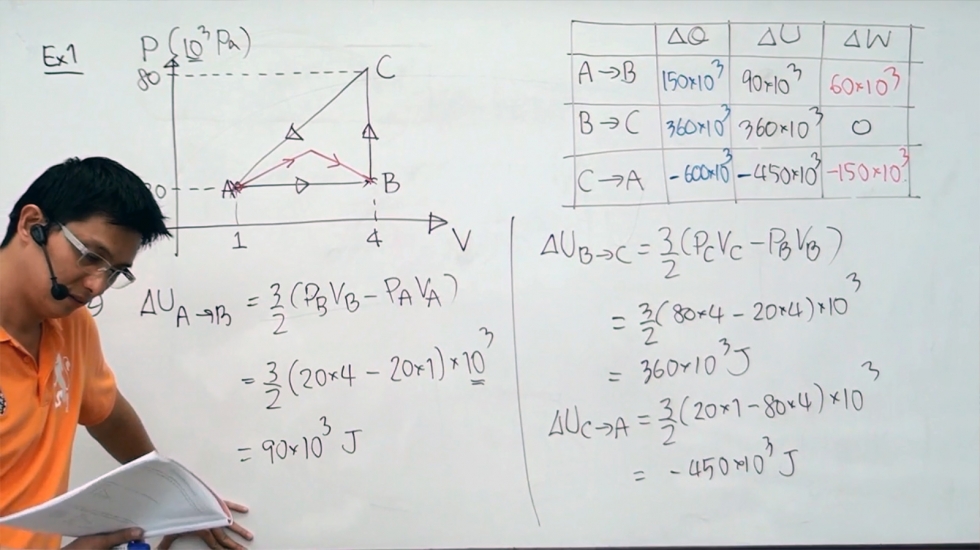 Ex1
P (10³ Pa)
80
C
A
B
0
1
4
V
ΔQ ΔU ΔW
A→B 150×10³ 90×10³ 60×10³
B→C 360×10³ 360×10³ 0
C→A -600×10³ -450×10³ -150×10³
ΔU A→B = 3/2 (P_B V_B − P_A V_A)
= 3/2 (20×4 − 20×1) × 10³
= 90×10³ J
ΔU B→C = 3/2 (P_C V_C − P_B V_B)
= 3/2 (80×4 − 20×4) × 10³
= 360×10³ J
ΔU C→A = 3/2 (20×1 − 80×4) × 10³
= -450×10³ J